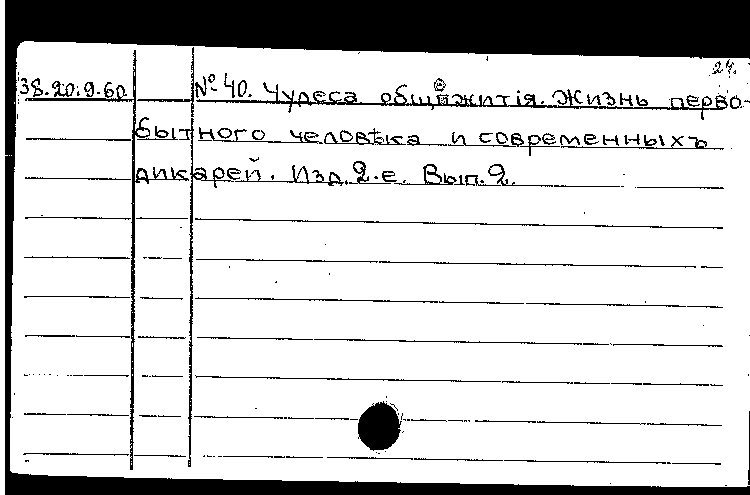 24.
38.20.9.60. № 40. Чудеса общежитія. Жизнь перво-
бытного человѣка и современныхъ
дикарей. Изд. 2-е. Вып. 2.